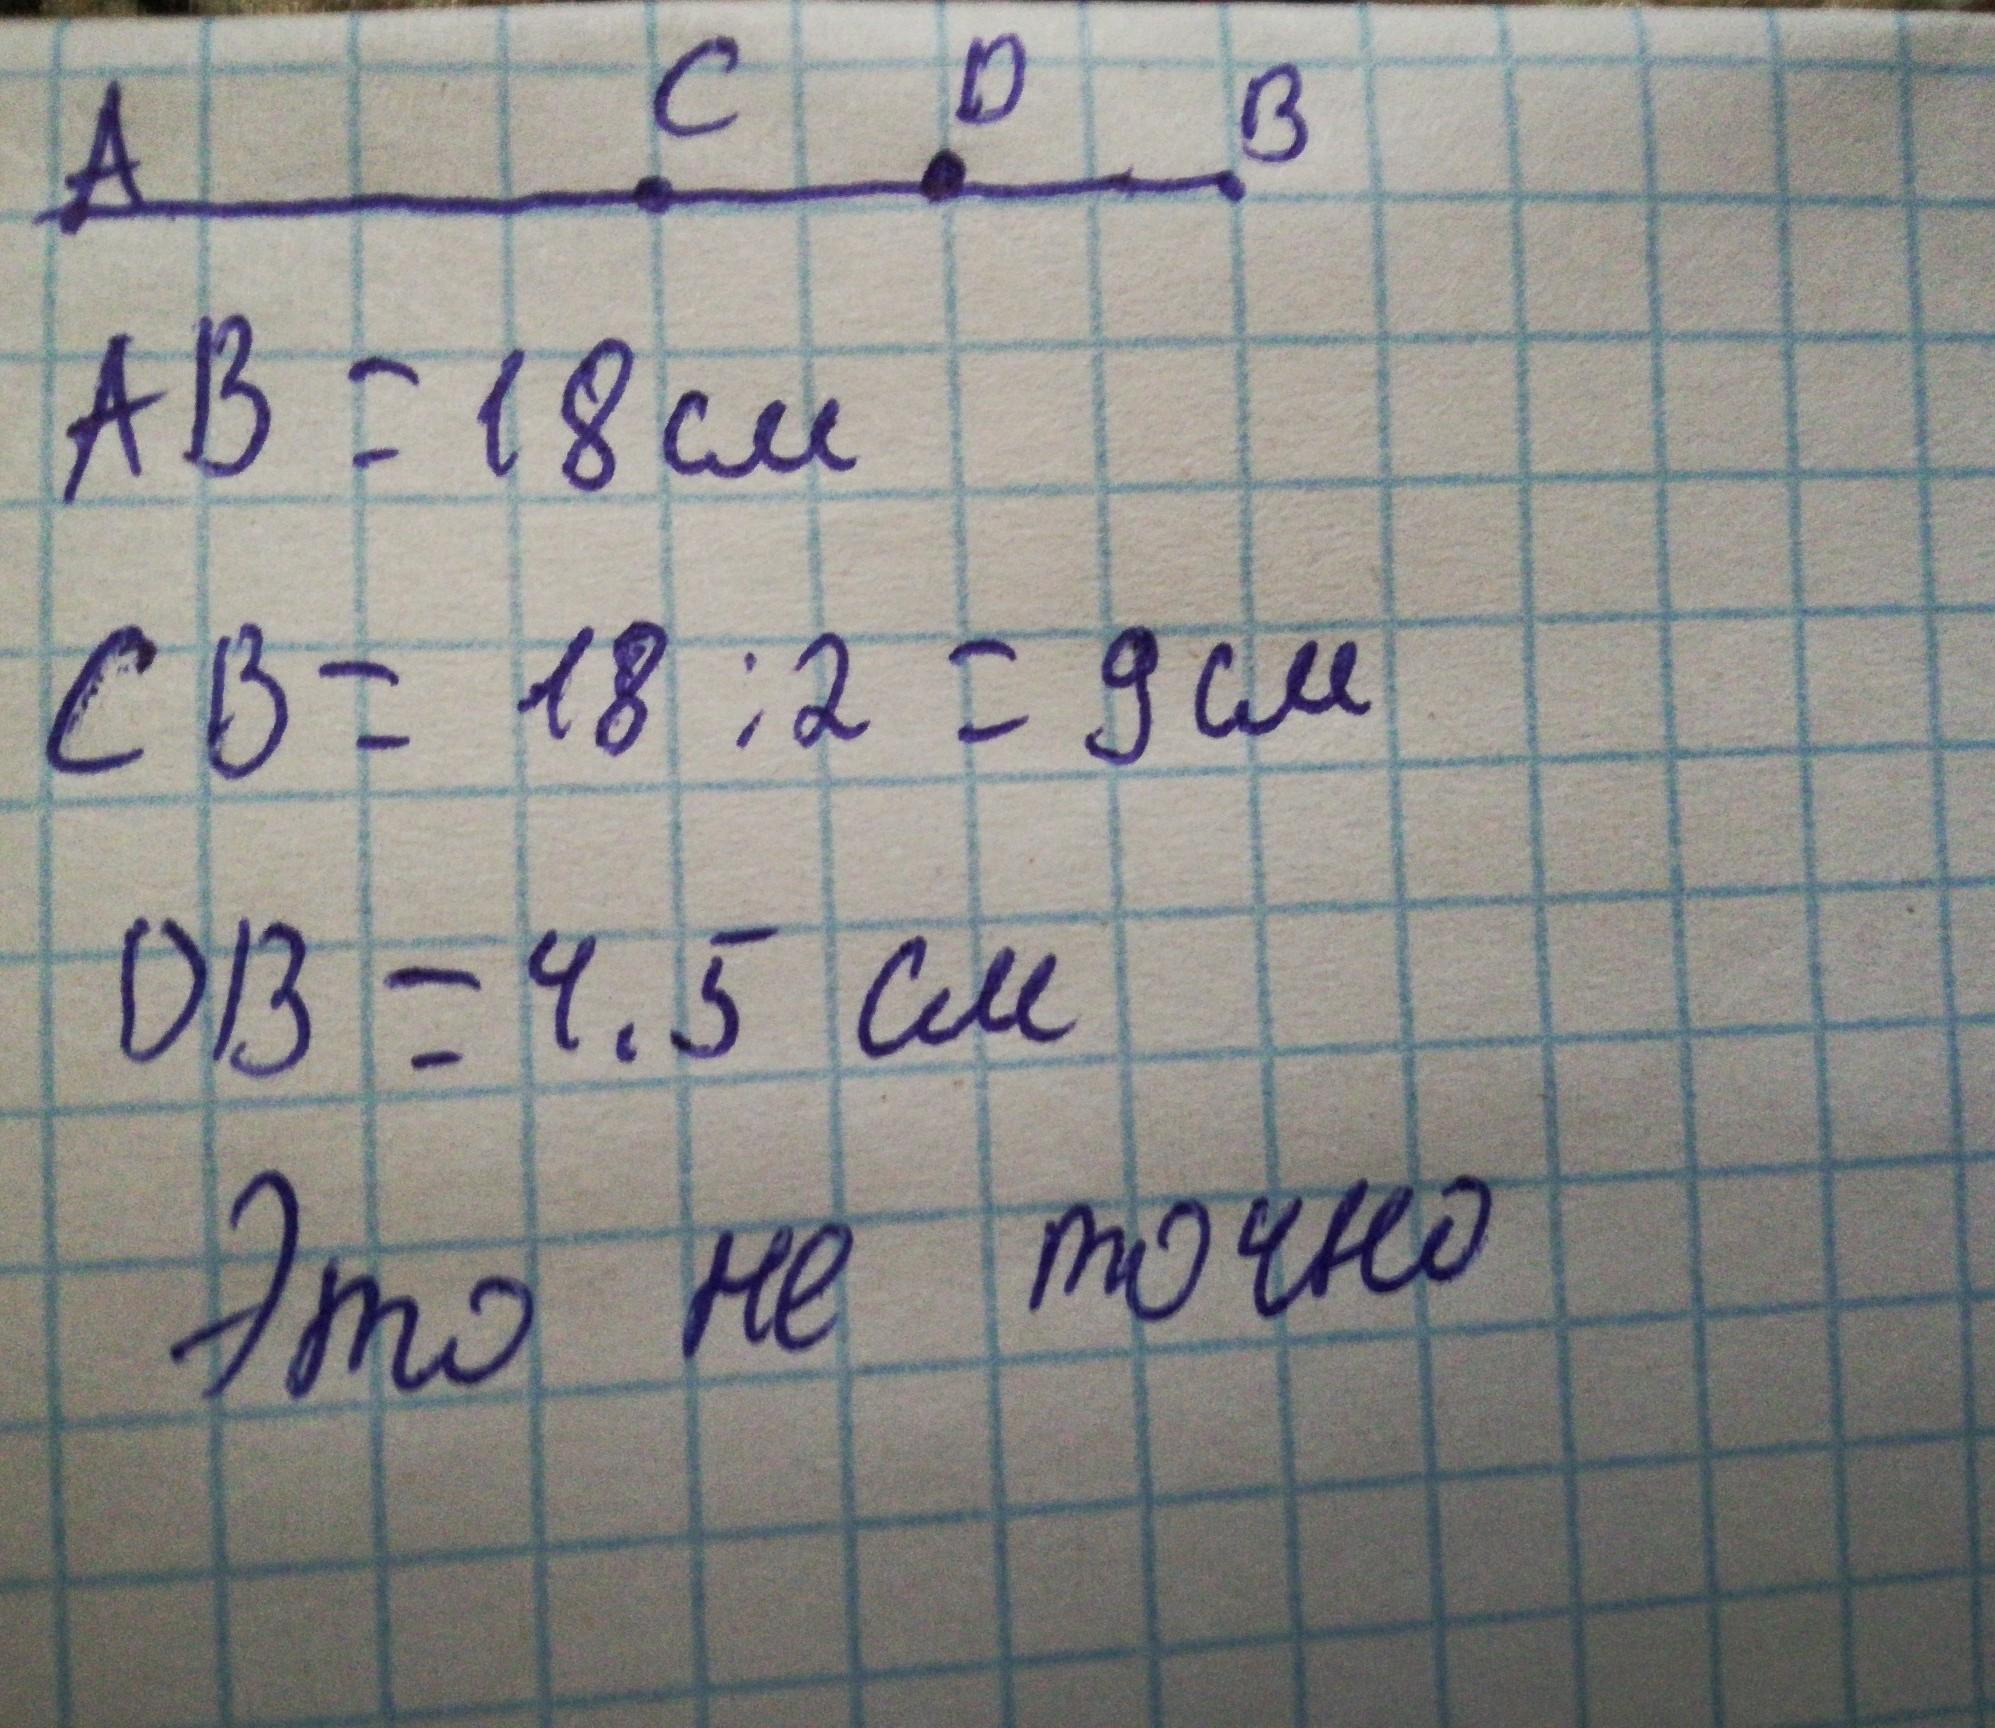 A C D B
AB = 18см
CB = 18 : 2 = 9см
DB = 4.5 см
Это не точно